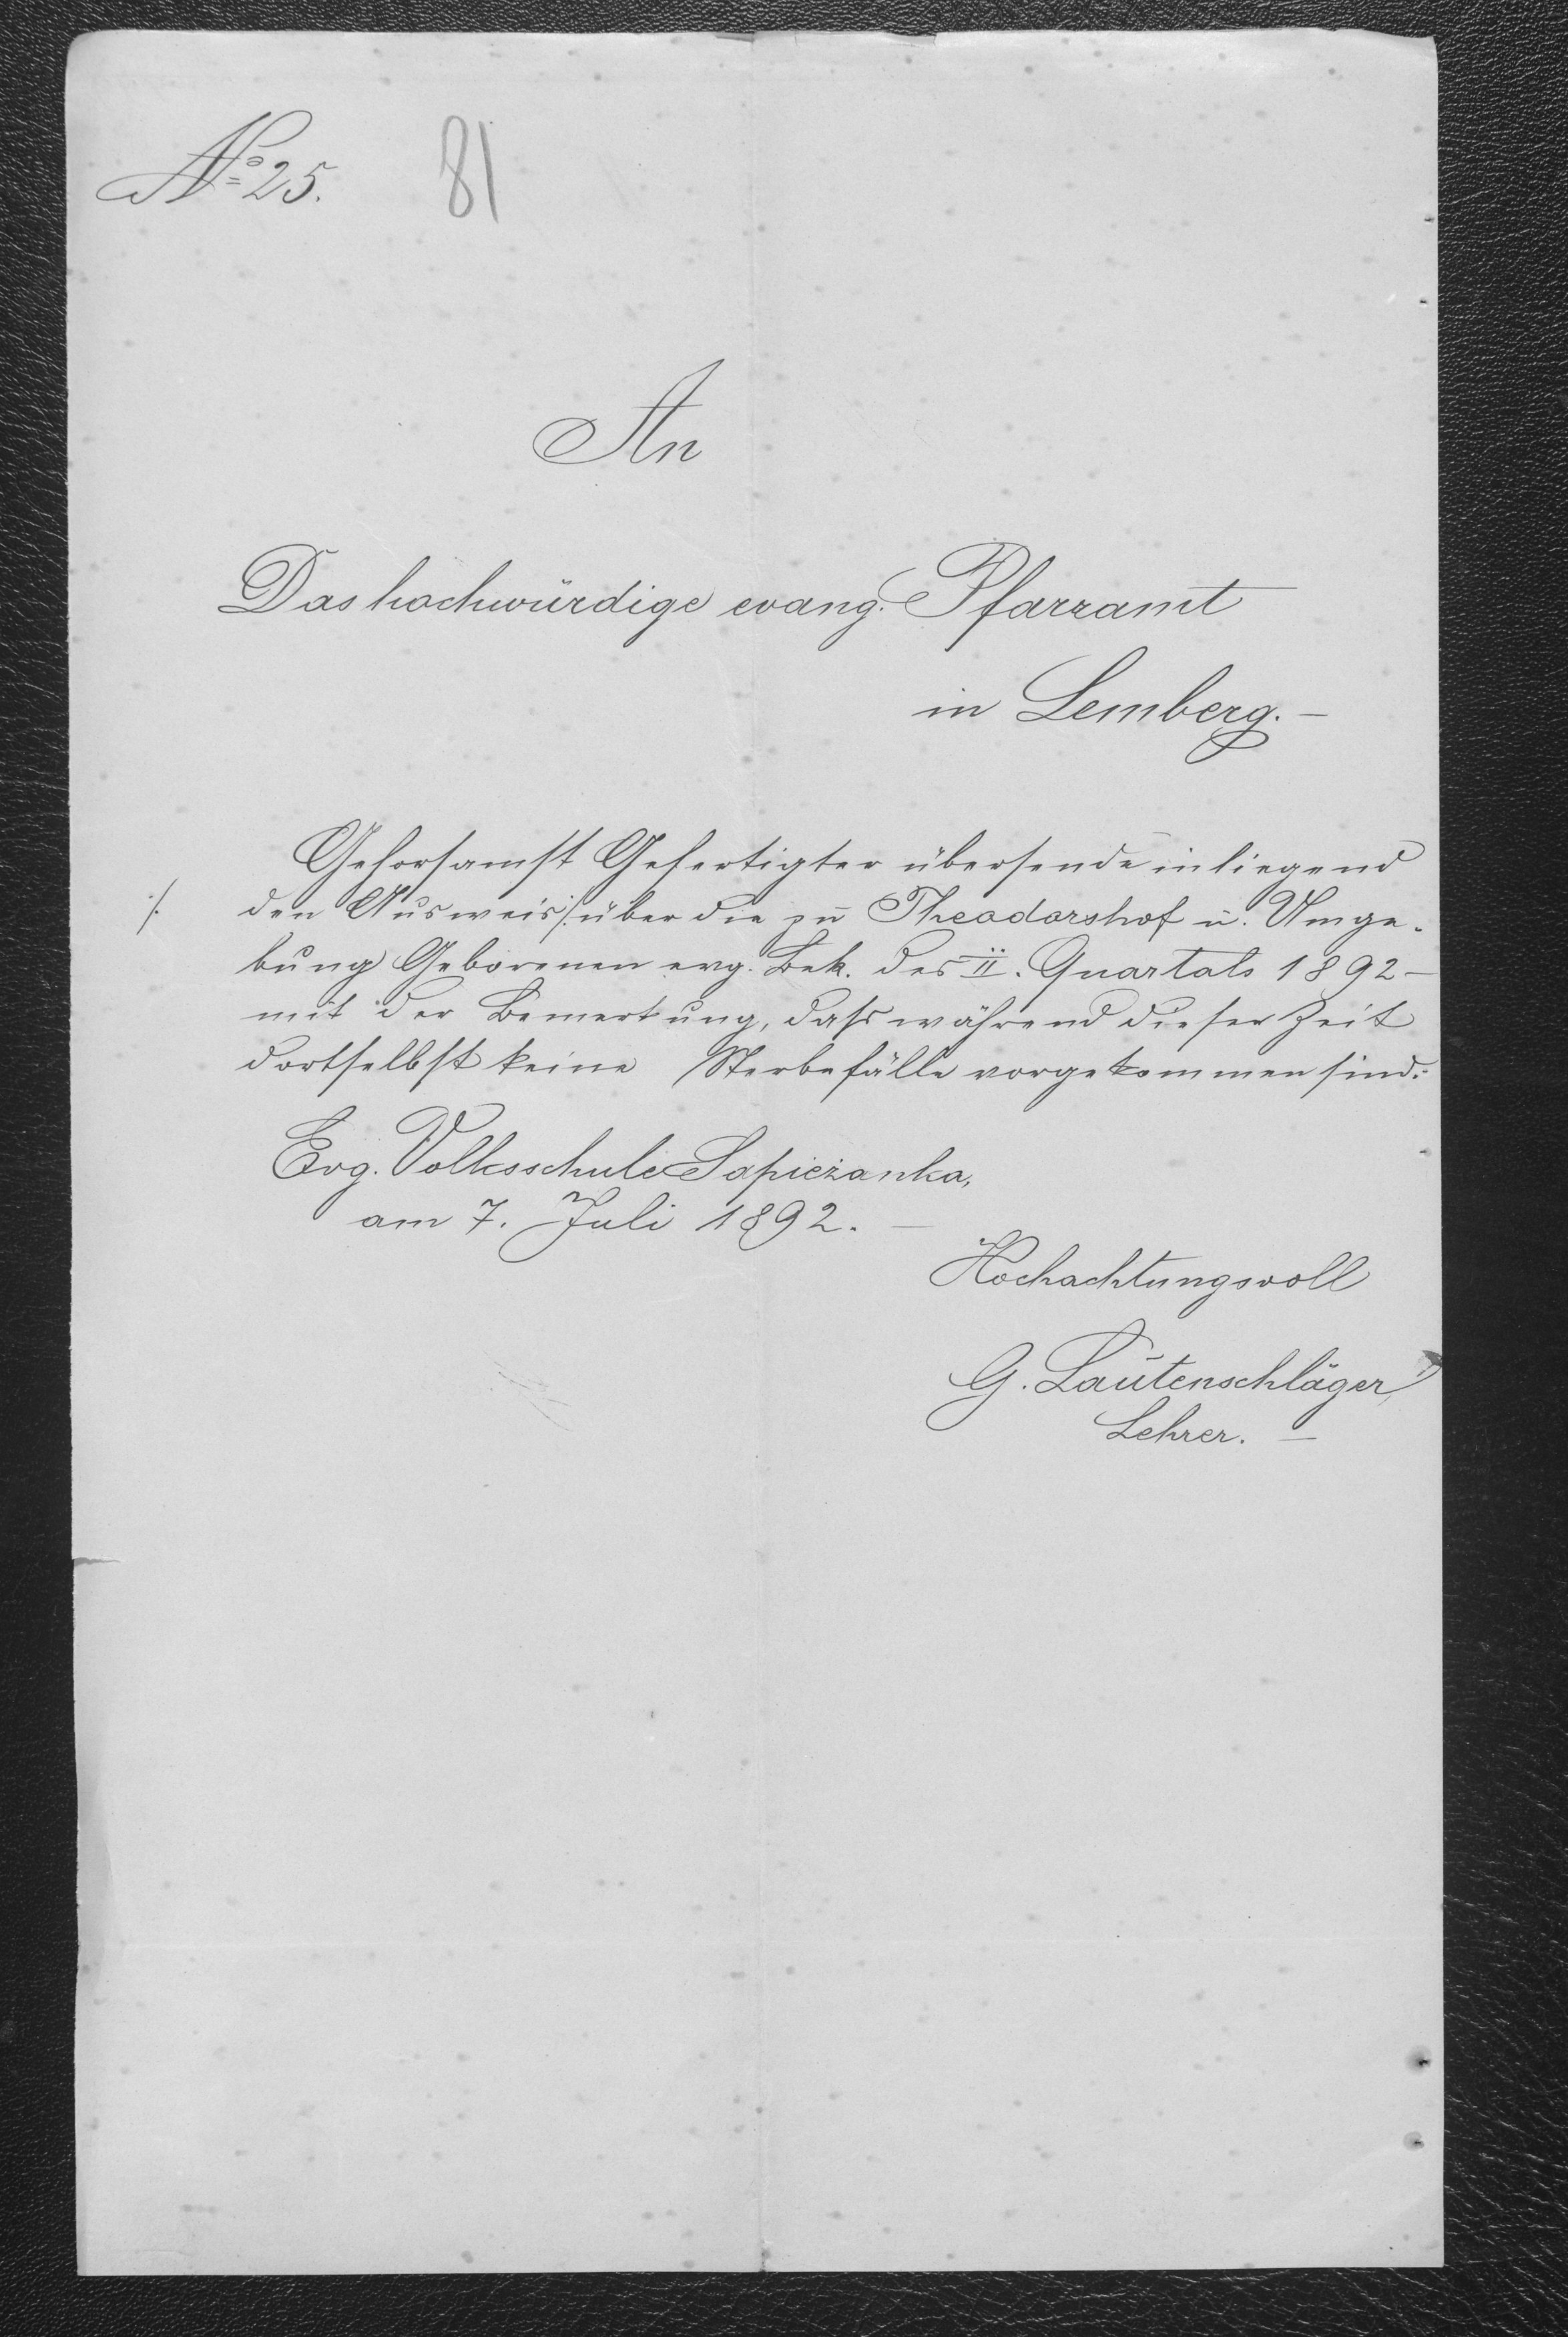 No 25. 81
An
Das hochwürdige evang. Pfarramt
in Lemberg. –
Gehorsamst Gefertigter übersende inliegend
./. den Ausweis ./. über die zu Theodorshof u. Umge-
bung Geborenen evg. Bek. des II. Quartals 1892 –
mit der Bemerkung, dass während dieser Zeit
dortselbst keine Sterbefälle vorgekommen sind. –
Evg. Volksschule Sapieżanka,
am 7. Juli 1892. –
Hochachtungsvoll
G. Lautenschläger,
Lehrer. –